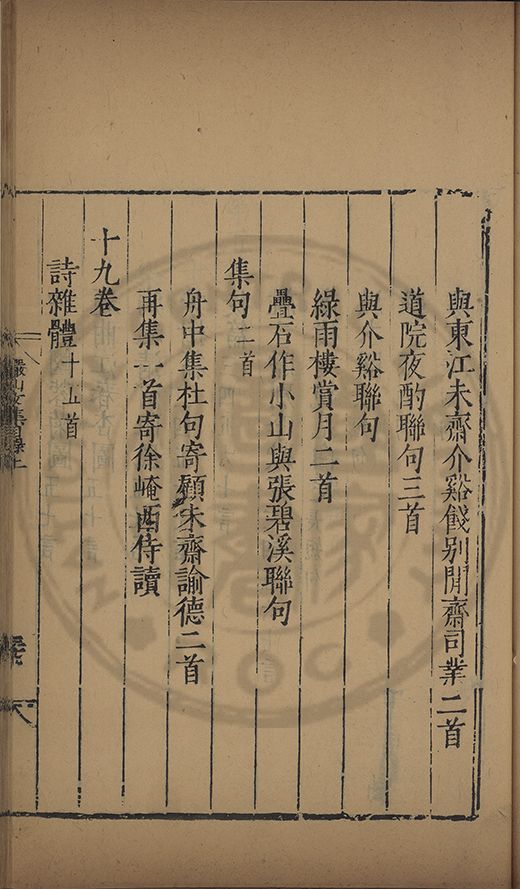 與東江未齋介谿餞別閒齋司業二首
道院夜酌聯句三首
與介谿聯句
綠雨樓賞月二首
疊石作小山與張碧溪聯句
集句二首
舟中集杜句寄顧未齋諭德二首
再集一首寄徐崦西侍讀
十九卷
詩雜體十五首